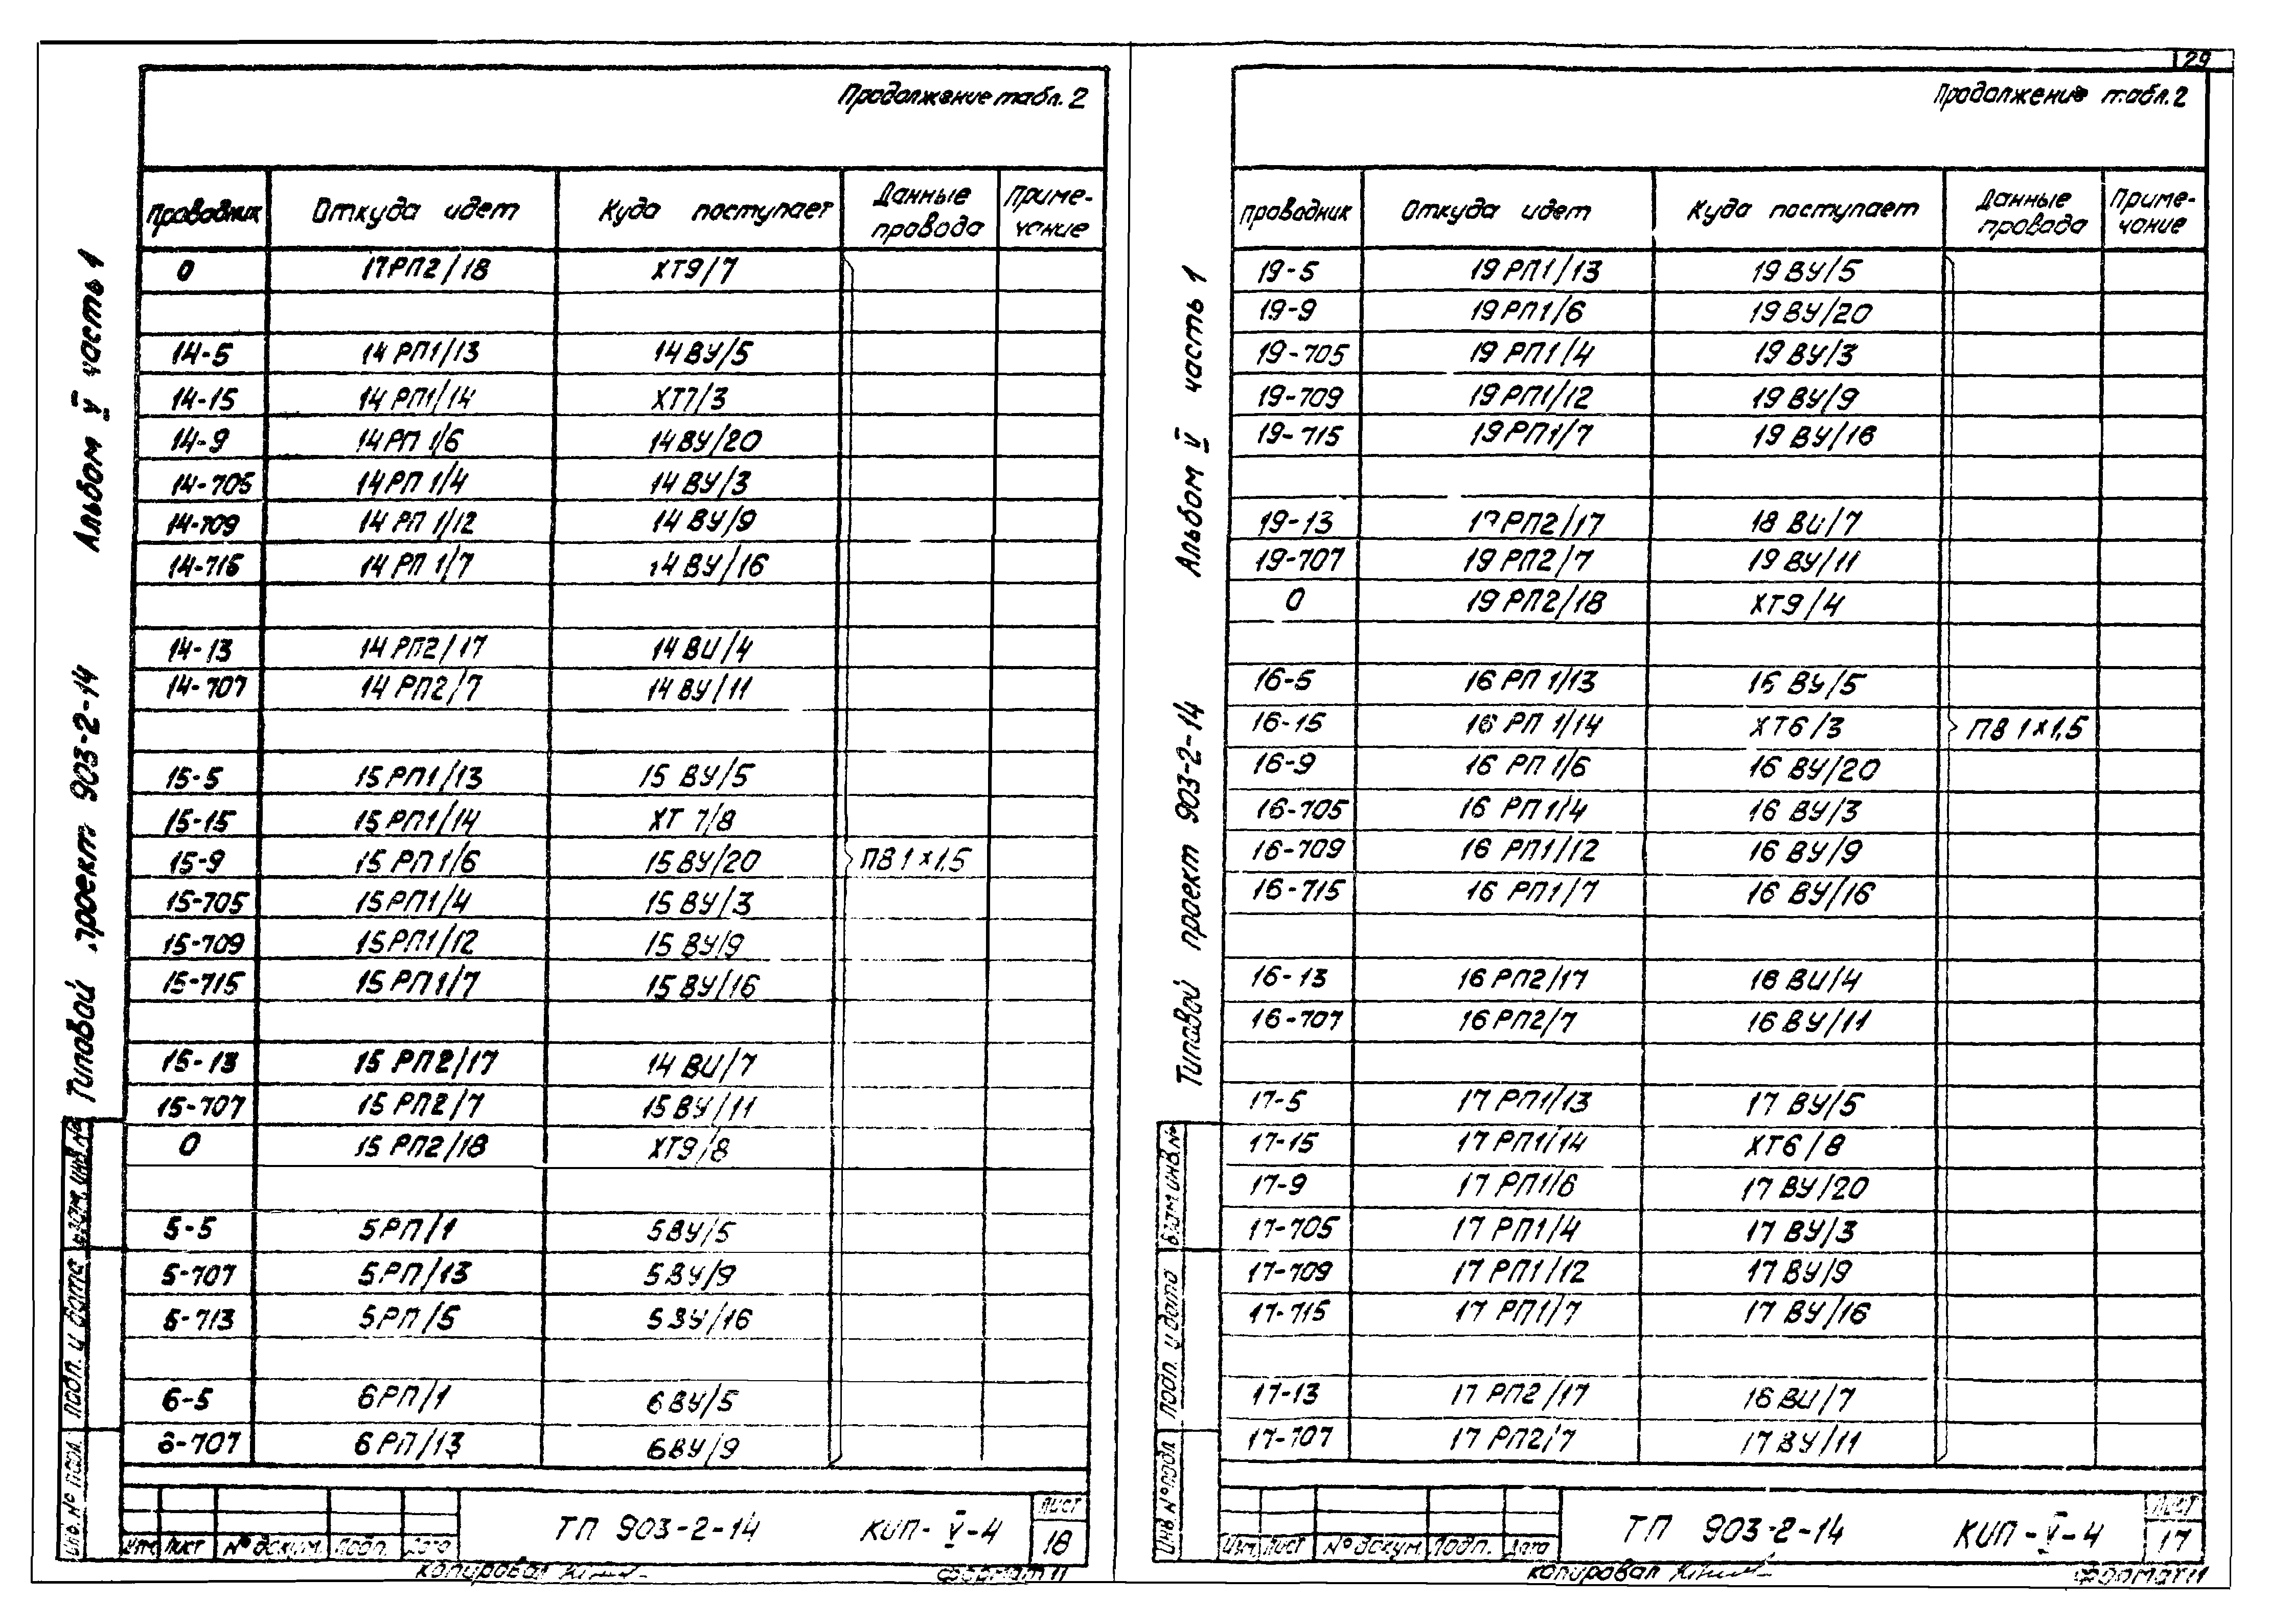 29
Продолжение табл. 2
Проводник Откуда идет Куда поступает Данные провода Приме-чание
0 17РП2/18 ХТ9/7
14-5 14РП1/13 14ВУ/5
14-15 14РП1/14 ХТ7/3
14-9 14РП1/6 14ВУ/20
14-705 14РП1/4 14ВУ/3
14-709 14РП1/12 14ВУ/9
14-715 14РП1/7 14ВУ/16
14-13 14РП2/17 14ВИ/4
14-707 14РП2/7 14ВУ/11
15-5 15РП1/13 15ВУ/5
15-15 15РП1/14 ХТ7/8
15-9 15РП1/6 15ВУ/20 ПВ 1×1,5
15-705 15РП1/4 15ВУ/3
15-709 15РП1/12 15ВУ/9
15-715 15РП1/7 15ВУ/16
15-13 15РП2/17 14ВИ/7
15-707 15РП2/7 15ВУ/11
0 15РП2/18 ХТ9/8
5-5 5РП/1 5ВУ/5
5-707 5РП/13 5ВУ/9
5-713 5РП/5 5ВУ/16
6-5 6РП/1 6ВУ/5
6-707 6РП/13 6ВУ/9
Типовой проект 903-2-14 Альбом V часть 1
Инв. № подл. Подп. и дата Взам. инв. №
Изм. Лист № докум. Подп. Дата
ТП 903-2-14 КИП-V-4
Лист
18
Копировал
Формат 11
Продолжение табл. 2
Проводник Откуда идет Куда поступает Данные провода Приме-чание
19-5 19РП1/13 19ВУ/5
19-9 19РП1/6 19ВУ/20
19-705 19РП1/4 19ВУ/3
19-709 19РП1/12 19ВУ/9
19-715 19РП1/7 19ВУ/16
19-13 19РП2/17 18ВИ/7
19-707 19РП2/7 19ВУ/11
0 19РП2/18 ХТ9/4
16-5 16РП1/13 16ВУ/5
16-15 16РП1/14 ХТ6/3 ПВ 1×1,5
16-9 16РП1/6 16ВУ/20
16-705 16РП1/4 16ВУ/3
16-709 16РП1/12 16ВУ/9
16-715 16РП1/7 16ВУ/16
16-13 16РП2/17 16ВИ/4
16-707 16РП2/7 16ВУ/11
17-5 17РП1/13 17ВУ/5
17-15 17РП1/14 ХТ6/8
17-9 17РП1/6 17ВУ/20
17-705 17РП1/4 17ВУ/3
17-709 17РП1/12 17ВУ/9
17-715 17РП1/7 17ВУ/16
17-13 17РП2/17 16ВИ/7
17-707 17РП2/7 17ВУ/11
Типовой проект 903-2-14 Альбом V часть 1
Инв. № подл. Подп. и дата Взам. инв. №
Изм. Лист № докум. Подп. Дата
ТП 903-2-14 КИП-V-4
Лист
17
Копировал
Формат 11